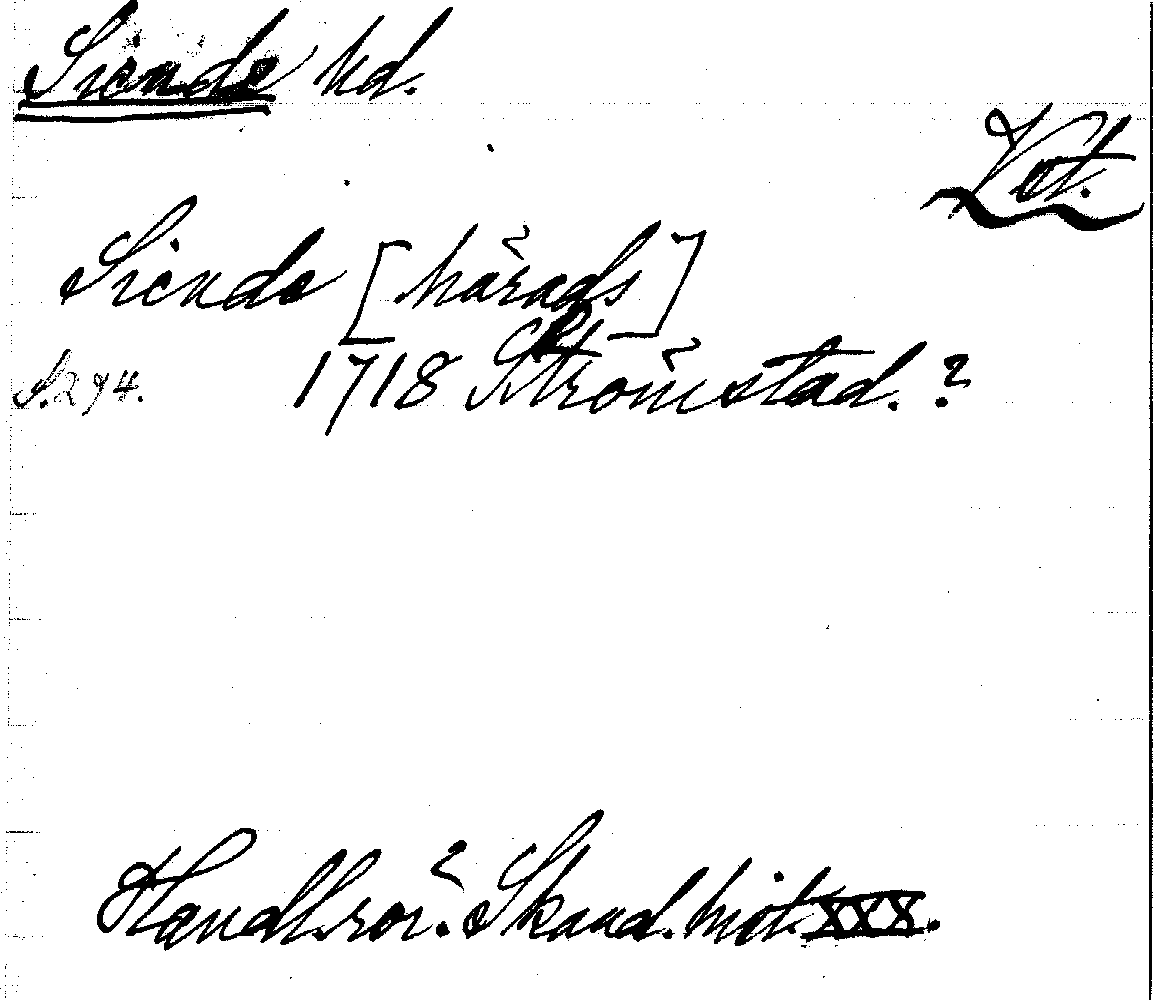 Siende hd.
Vstm.
Siende [härads]
S. 294. 1718 Strömstad. ?
Handl. rör. Skand. hist. XXX.